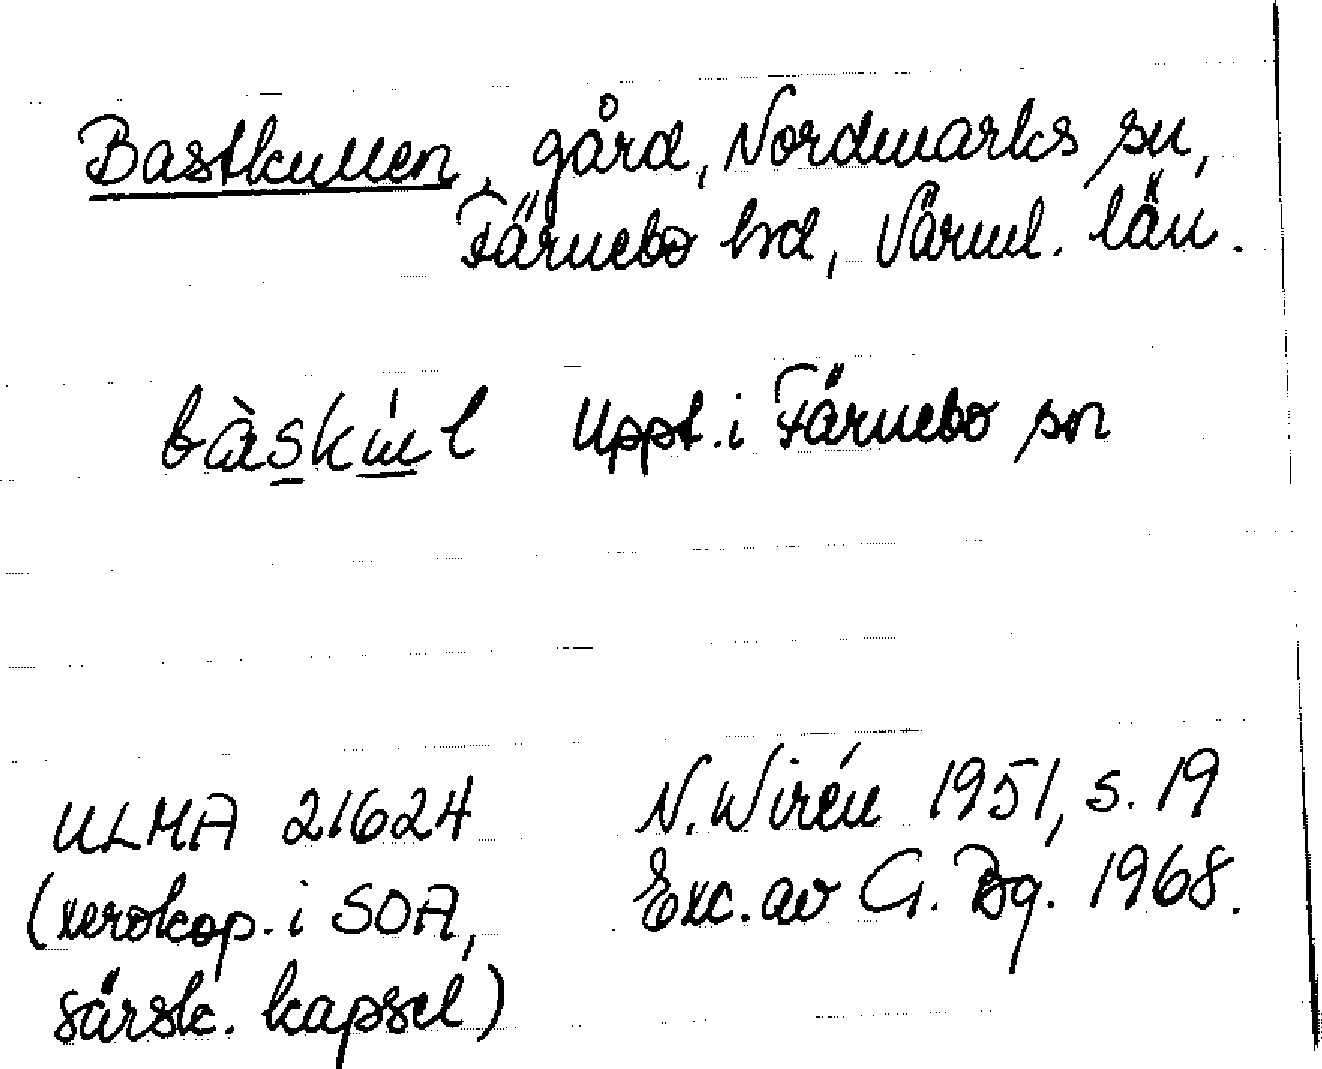 Bastkullen, gård, Nordmarks sn,
Färnebo hd, Värml. län.
bàskúl Uppt. i Färnebo sn
ULMA 21624 N. Wirén 1951, s. 19
(xerokop. i SOA, Exc. av G. Bg. 1968.
särsk. kapsel)